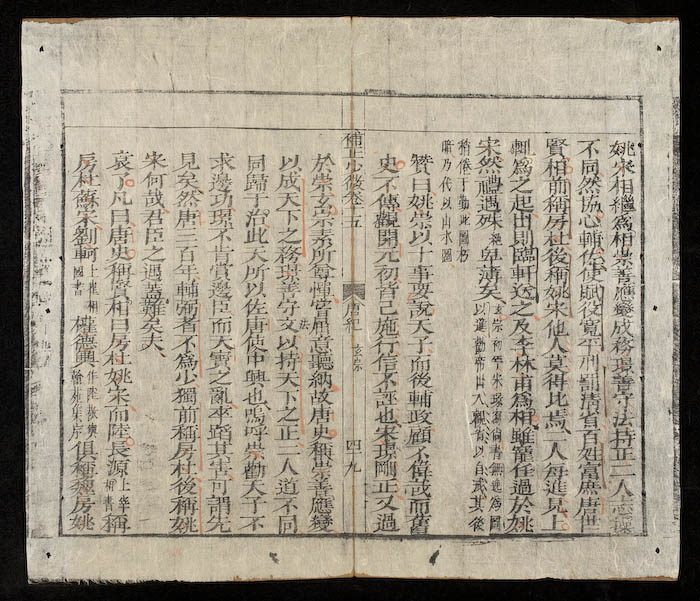 姚宋相繼爲相崇善應變成務璟善守法持正二人志操
不同然協心輔佐使賦役寬平刑罰清省百姓富庶唐世
賢相前稱房杜後稱姚宋他人莫得比焉二人每進見上
輒爲之起出則臨軒送之及李林甫爲相雖寵任過於姚
宋然禮遇殊卑薄矣
稍倦于勤此圖朽
暗乃代以山水圖
贊曰姚崇以十事要說天子而後輔政顧不偉哉而舊
史不傳觀開元初皆已施行信不誣也宋璟剛正又過
補正 卷十五 唐紀 玄宗 四十九
於崇玄宗素所尊憚嘗屈意聽納故唐史稱崇善應變
以成天下之務璟善守文以持天下之正二人道不同
法
同歸于治此天所以佐唐使中興也嗚呼崇勸天子不
求邊功璟不肯賞邊臣而天寶之亂卒蹈其害可謂先
見矣然唐三百年輔弼者不爲少獨前稱房杜後稱姚
宋何哉君臣之遇蓋難矣夫
袁了凡曰唐史稱賢相曰房杜姚宋而陸長源上宰相書稱
房杜蘇宋劉軻上崔相國書權德輿作陸 翰苑集序俱稱 房姚